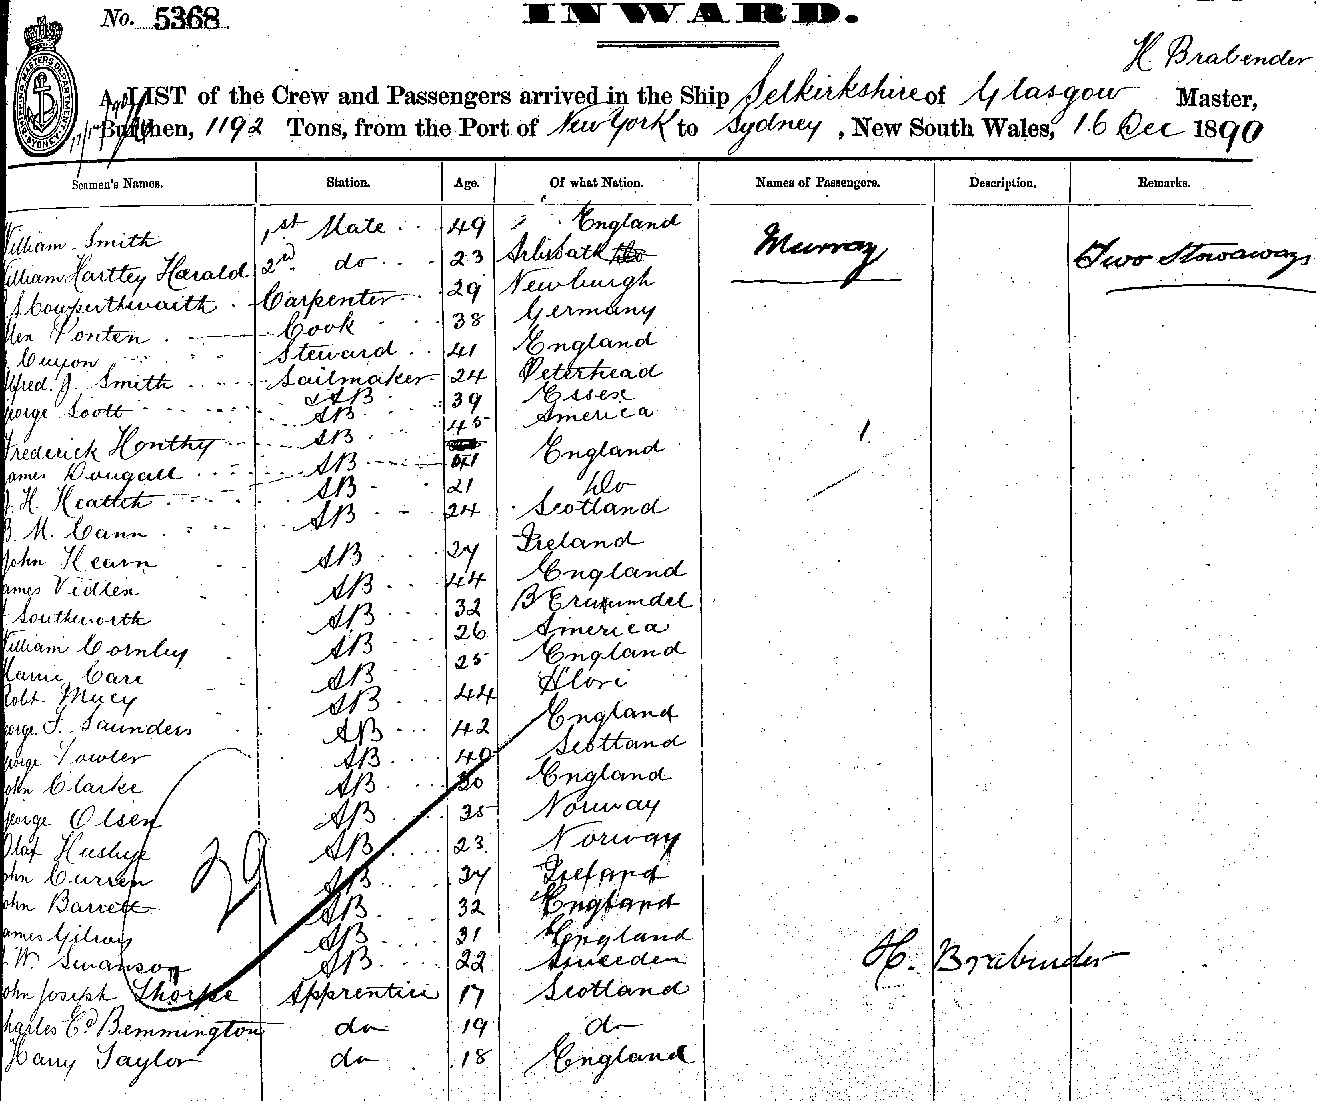 No. 5368
INWARD.
H Brabender
A LIST of the Crew and Passengers arrived in the Ship Selkirkshire of Glasgow Master,
Burthen, 1192 Tons, from the Port of New York to Sydney, New South Wales, 16 Dec 1890
Seamen's Names. Station. Age. Of what Nation. Names of Passengers. Description. Remarks.
William Smith 1st Mate 49 England
William Hartley Harald 2nd do 23 Murray Two Stowaways
Cowperthwaith Carpenter 29 Newburgh
Ponten Cook 38 Germany
Steward 41 England
Alfred J. Smith Sailmaker 24 Peterhead
George Scott AB 39 Essex
AB 45 America
Frederick Honthy AB 41 England
James Dougall AB 21 Do
H. AB 24 Scotland
M. Cann
John Hearn AB 27 Ireland
James Vidlen AB 44 England
Southworth AB 32
William Cornley AB 26 America
Carr AB 25 England
Robt. Mucy AB 44
George F. Saunders AB 42 England
George Fowler AB 40 Scotland
John Clarke AB 30 England
George Olsen AB 35 Norway
Olaf AB 23 Norway
John Curren AB 27 Ireland
John Barrett AB 32 England
James Gilroy AB 31 England
W. Swanson AB 22 Sweeden
John Joseph Thorpe Apprentice 17 Scotland
Charles Ed Bemmington do 19 do
Harry Taylor do 18 England
29
H. Brabender